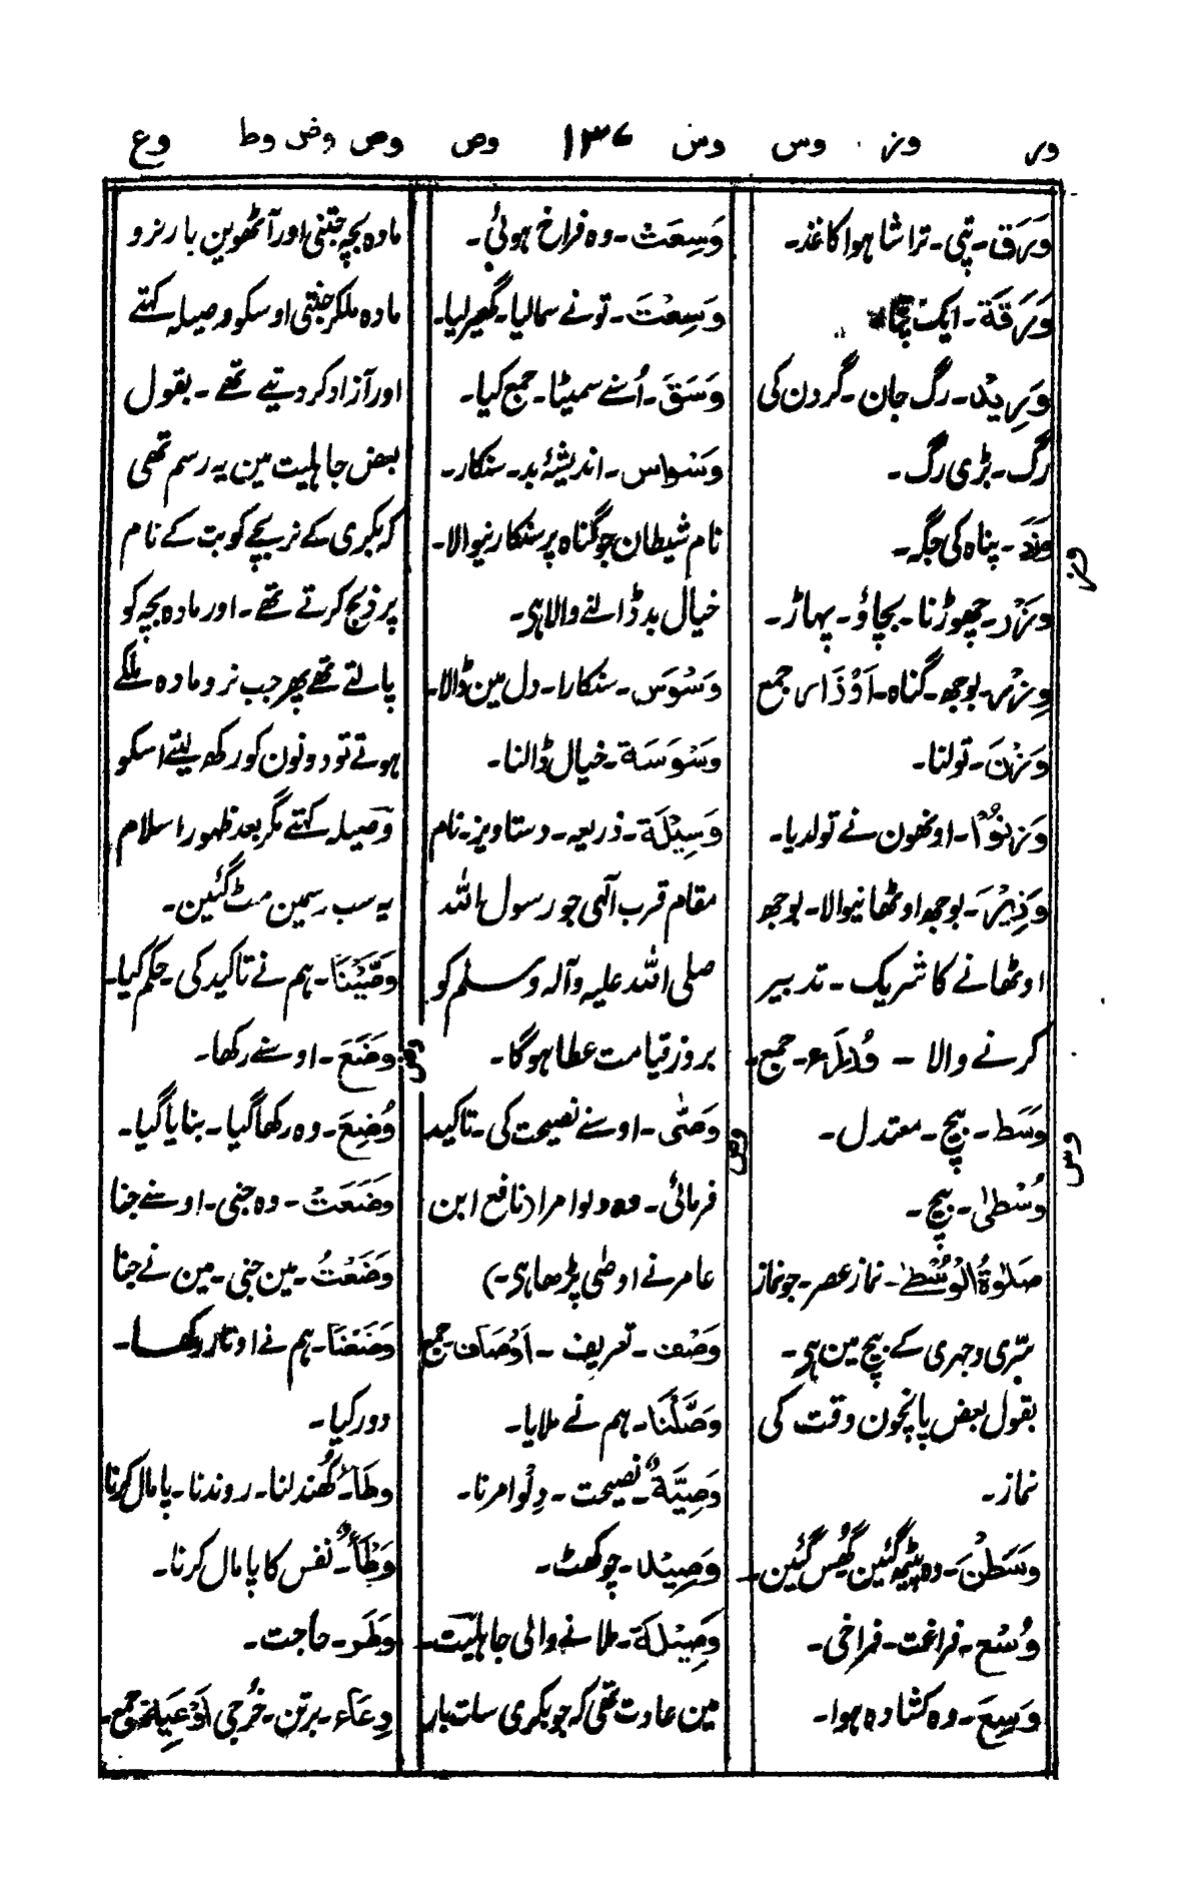 ور وز وس وش ۱۳۶ وص وص وض وط وع
وَرَق۔ پتی۔ تراشا ہوا کاغذ۔
وَرَقَة۔ ایک پتا
وَرِیْد۔ رگ جان۔ گردن کی
رگ۔ بڑی رگ۔
وز
وَزَر۔ پناہ کی جگہ۔
وزر۔ چھوڑنا۔ بچاؤ۔ پہاڑ۔
وِزْر۔ بوجھ۔ گناہ۔ اَوْزَار جمع
وَزْنَ۔ تولنا۔
وَزَنُوْا۔ اونھون نے تولدیا۔
وَزِیْر۔ بوجھ اوٹھانیوالا۔ بوجھ
اوٹھانے کا شریک۔ تدبیر
کرنے والا۔ وُزَرَاء۔ جمع۔
وس
وَسَط۔ بیچ۔ معتدل۔
وُسْطیٰ۔ بیچ۔
صَلٰوةُ الْوُسْطےٰ۔ نماز عصر۔ جو نماز
سّری و جہری کے بیچ مین ہی۔
بقول بعض پانچون وقت کی
نماز۔
وَسَطْنَ۔ وہ بیٹھ گئین گھُس گئین۔
وُسْع۔ فراغت۔ فراخی۔
وَسِعَ۔ وہ کشادہ ہوا۔
وَسِعَتْ۔ وہ فراخ ہوئی۔
وَسِعْتَ۔ تونے سمالیا۔ گھیر لیا۔
وَسَقَ۔ اُسنے سمیٹا۔ جمع کیا۔
وَسْوَاس۔ اندیشۂ بد۔ سنکار۔
نام شیطان جو گناہ پر سنکارنیوالا۔
خیال بد ڈالنے والا ہی۔
وَسْوَسَ۔ سنکارا۔ دل مین ڈالا۔
وَسْوَسَة۔ خیال ڈالنا۔
وَسِیْلَة۔ ذریعہ۔ دستاویز۔ نام
مقام قرب آلہی جو رسول اللہ
صلی اللہ علیہ وآلہ وسلم کو
بروز قیامت عطا ہوگا۔
وص
وَصّٰی۔ اوسنے نصیحت کی۔ تاکید
فرمائی۔ وہ دلوا مرا دنافع ابن
عامر نے اوصٰی پڑھا ہی۔)
وَصْف۔ تعریف۔ اَوْصَاف جمع
وَصَّلْنَا۔ ہم نے ملایا۔
وَصِیَّةٌ۔ نصیحت۔ دِلْوا مرنا۔
وَصِیْد۔ چوکھٹ۔
وَصِیْلَة۔ ملانے والی جاہلیّت
مین عادت تھی کہ جو بکری سات بار
مادہ بچہ جنتی اور آٹھوین بار نرو
مادہ ملکر جنتی اوسکو وصیلہ کہتے
اور آزاد کر دیتے تھے۔ بقول
بعض جاہلیت مین یہ رسم تھی
کہ بکری کے نر بچے کو بت کے نام
پر ذبح کرتے تھے۔ اور مادہ بچہ کو
پالتے تھے پھر جب نر و مادہ ملکے
ہوتے تو دونون کو رکھ لیتے اسکو
وَصیلہ کہتے مگر بعد ظہور اسلام
یہ سب رسمین مٹ گئین۔
وَصَّیْنَا۔ ہم نے تاکید کی حکم کیا۔
وض
وَضَعَ۔ اوسنے رکھا۔
وُضِعَ۔ وہ رکھا گیا۔ بنایا گیا۔
وَضَعَتْ۔ وہ جنی۔ اوسنے جنا
وَضَعْتُ۔ مین جنی۔ مین نے جنا
وَضَعْنَا۔ ہم نے اوتار رکھا۔
دور کیا۔
وطَأ۔ گھُندلنا۔ روندنا۔ پامال کرنا
وَطْأً۔ نفس کا پامال کرنا۔
وَطَر۔ حاجت۔
وِعَاء۔ برتن۔ خُرجی اَوْعِیَة جمع۔